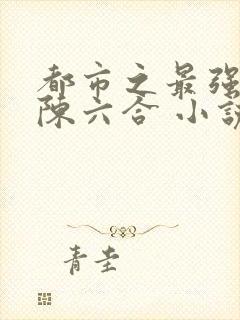 都市之最强
陈六合 小説
青圭